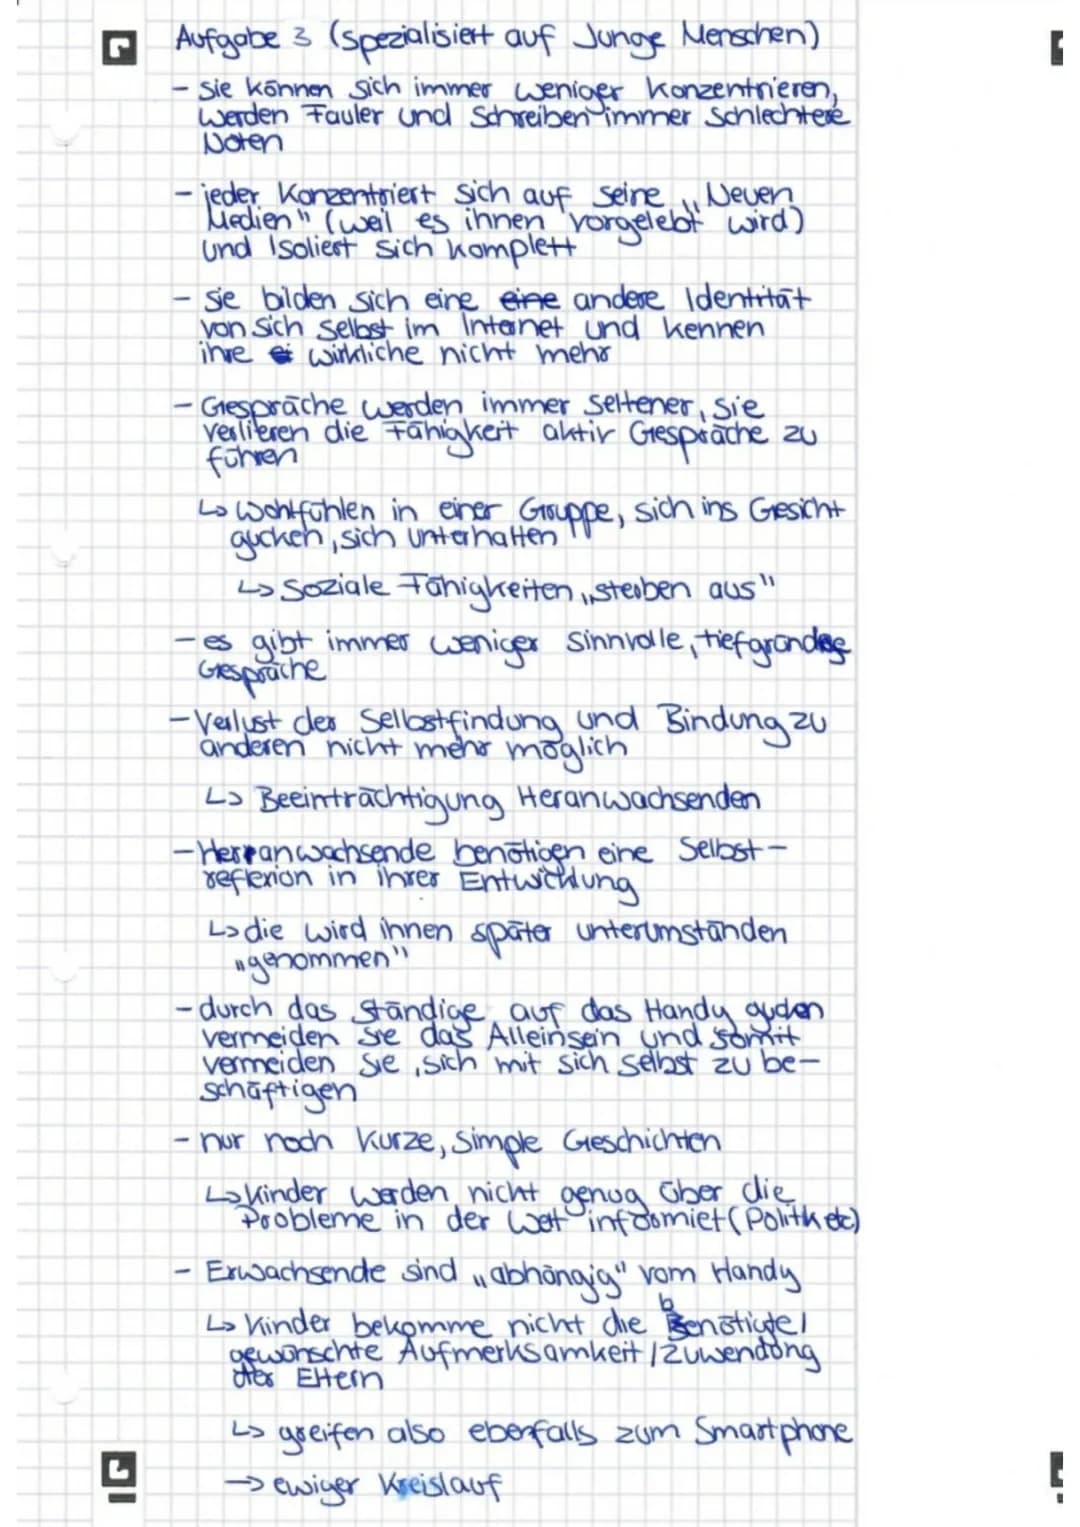 Aufgabe 3 (Spezialisiert auf Junge Menschen)
- Sie können sich immer weniger Konzentrieren,
werden Fauler und Schreiben immer Schlechtere
Noten
- jeder Konzentriert sich auf seine „Neuen
Medien" (weil es ihnen vorgelebt wird)
und Isoliert sich komplett
- Sie bilden sich eine eine andere Identität
von sich selbst im Internet und kennen
ihre wirkliche nicht mehr
- Gespräche werden immer seltener, sie
verlieren die Fähigkeit aktiv Gespräche zu
führen
↳ wohlfühlen in einer Gruppe, sich ins Gesicht
gucken, sich unterhalten
↳ Soziale Fähigkeiten „sterben aus"
- es gibt immer weniger sinnvolle, tiefgründige
Gespräche
- Verlust der Selbstfindung und Bindung zu
anderen nicht mehr möglich
↳ Beeinträchtigung Heranwachsenden
- Heranwachsende benötigen eine Selbst-
reflexion in ihrer Entwicklung
↳ die wird ihnen später unterumständen
„genommen"
- durch das Ständige auf das Handy gucken
vermeiden sie das Alleinsein und somit
vermeiden sie, sich mit sich selbst zu be-
schäftigen
- nur noch Kurze, Simple Geschichten
↳ Kinder werden nicht genug über die
Probleme in der Welt informiet (Politk etc)
- Erwachsende sind „abhängig" vom Handy
↳ Kinder bekomme nicht die benötigte/
gewünschte Aufmerksamkeit / Zuwendung
der Eltern
↳ greifen also ebenfalls zum Smartphone
→ ewiger Kreislauf